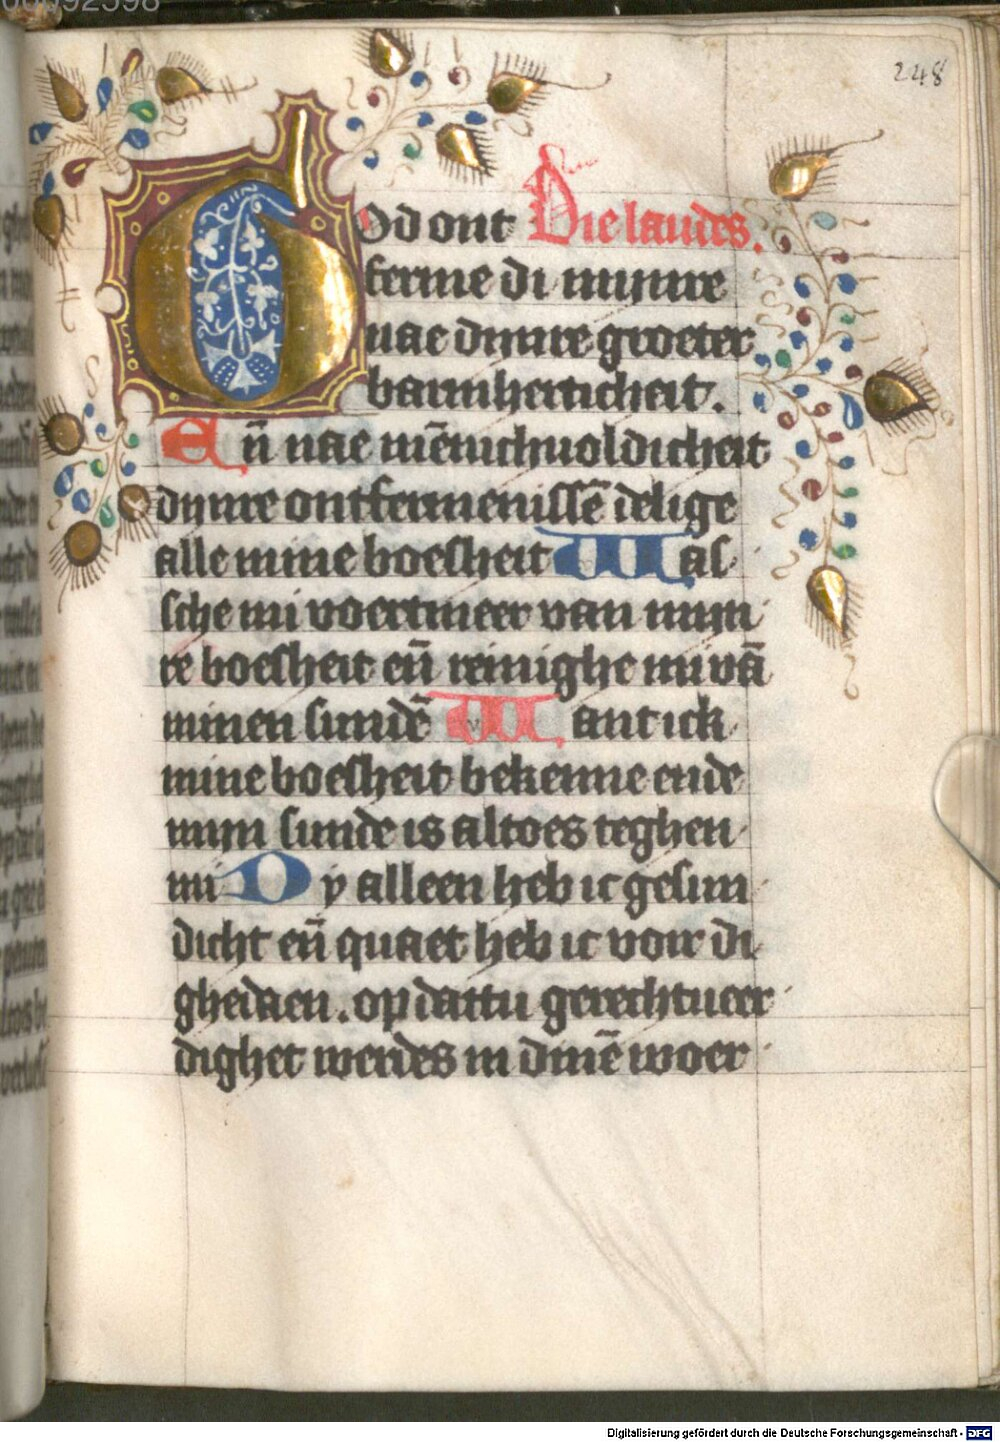 248
God ont Die laudes.
ferme di mijnre
nae dijnre groeter
barmherticheit.
Eñ nae mēnichuoldicheit
dijnre ontfermenissē delige
alle mine boesheit Was
sche mi voertmeer van mijn
re boesheit eñ reinighe mi vā
minen sundē Want ick
mine boesheit bekenne ende
mijn sunde is altoes teghen
mi Dy alleen heb ic gesun
dicht eñ quaet heb ic voir di
ghedaen. op dattu gerechtueer
dighet werdes in dinē woer
Digitalisierung gefördert durch die Deutsche Forschungsgemeinschaft - DFG